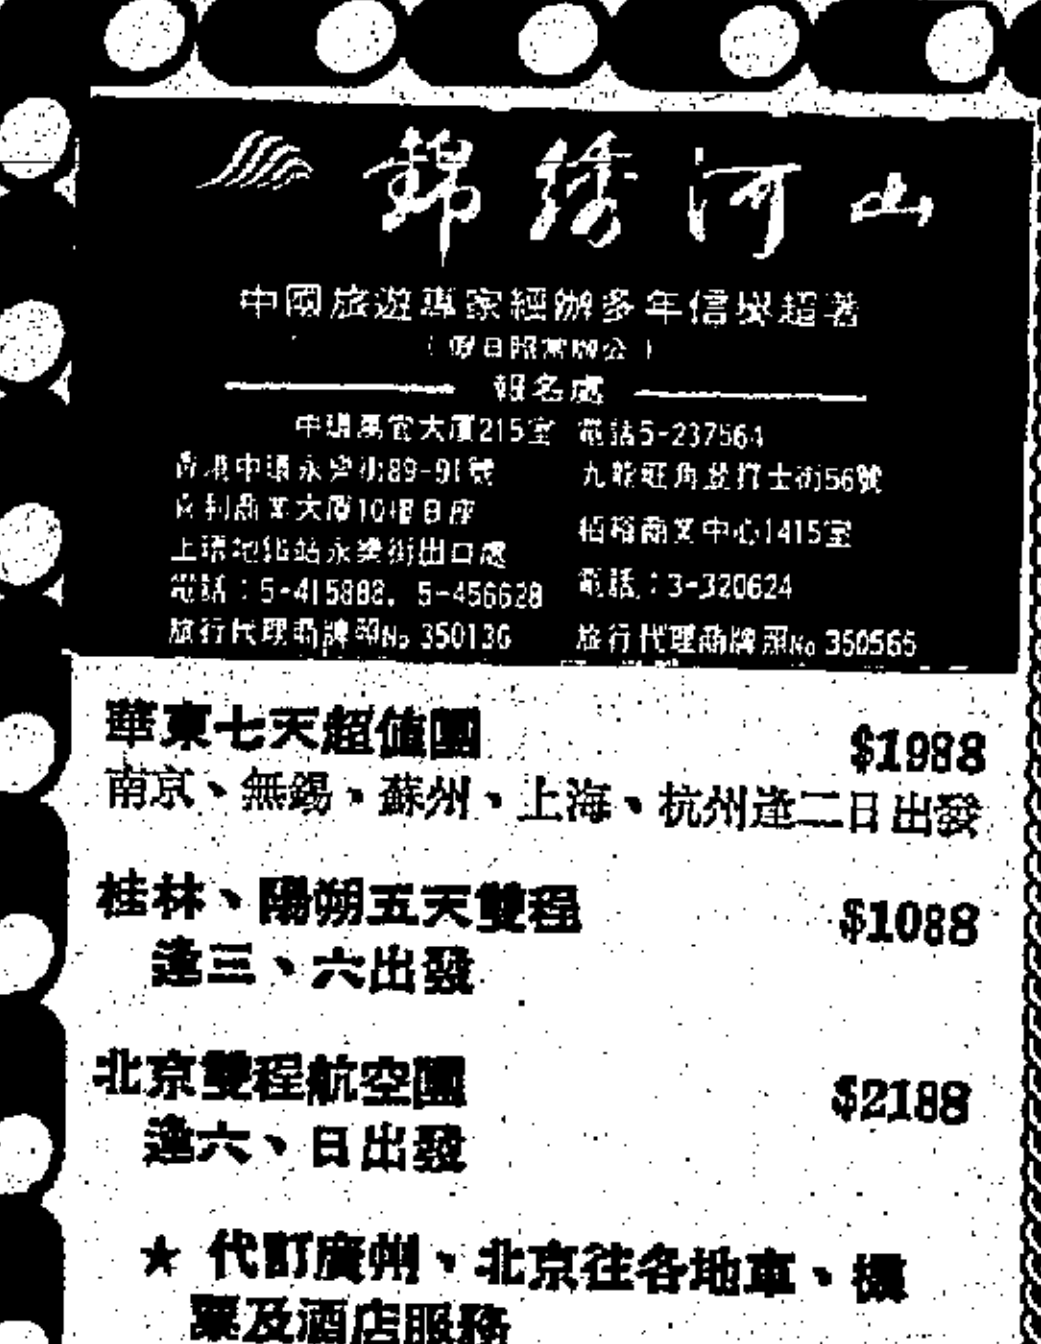 錦綉河山
中國旅遊專家經辦多年信譽超著
(假日照常辦公)
報名處
中環萬宜大廈215室 電話5-237564
香港中環永樂街89-91號
商業大廈10樓B座
上環地鐵站永樂街出口處
電話：5-415882, 5-456628
旅行代理商牌照No 350136
九龍旺角登打士街56號
栢裕商業中心1415室
電話：3-320624
旅行代理商牌照No 350565
華東七天超值團 $1988
南京、無錫、蘇州、上海、杭州逢二日出發
桂林、陽朔五天雙程 $1088
逢三、六出發
北京雙程航空團 $2188
逢六、日出發
★ 代訂廣州、北京往各地車、機
票及酒店服務